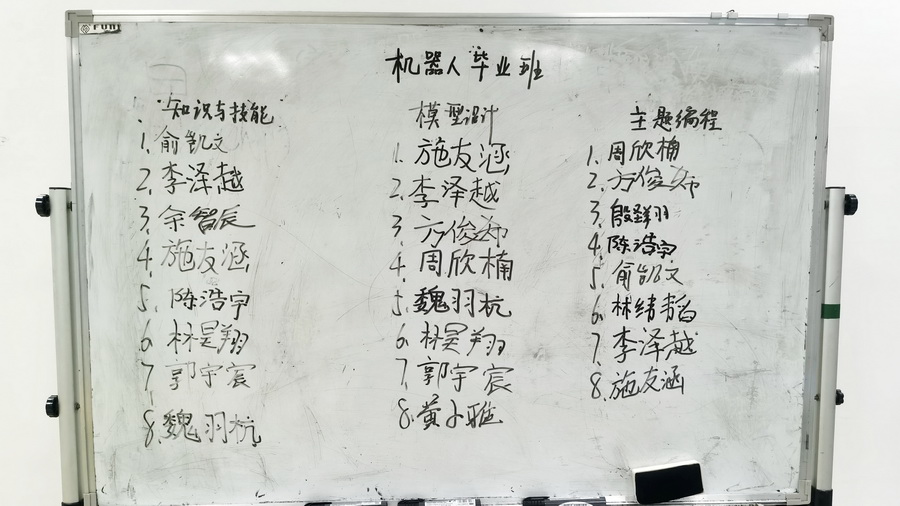 机器人毕业班
知识与技能
1. 俞凯文
2. 李泽越
3. 余智辰
4. 施友涵
5. 陈浩宇
6. 林昱翔
7. 郭宇宸
8. 魏羽杭
模型设计
1. 施友涵
2. 李泽越
3. 方俊
4. 周欣楠
5. 魏羽杭
6. 林昱翔
7. 郭宇宸
8. 黄小雅
主题编程
1. 周欣楠
2. 方俊
3. 殷翊羽
4. 陈浩宇
5. 俞凯文
6. 林绮韬
7. 李泽越
8. 施友涵